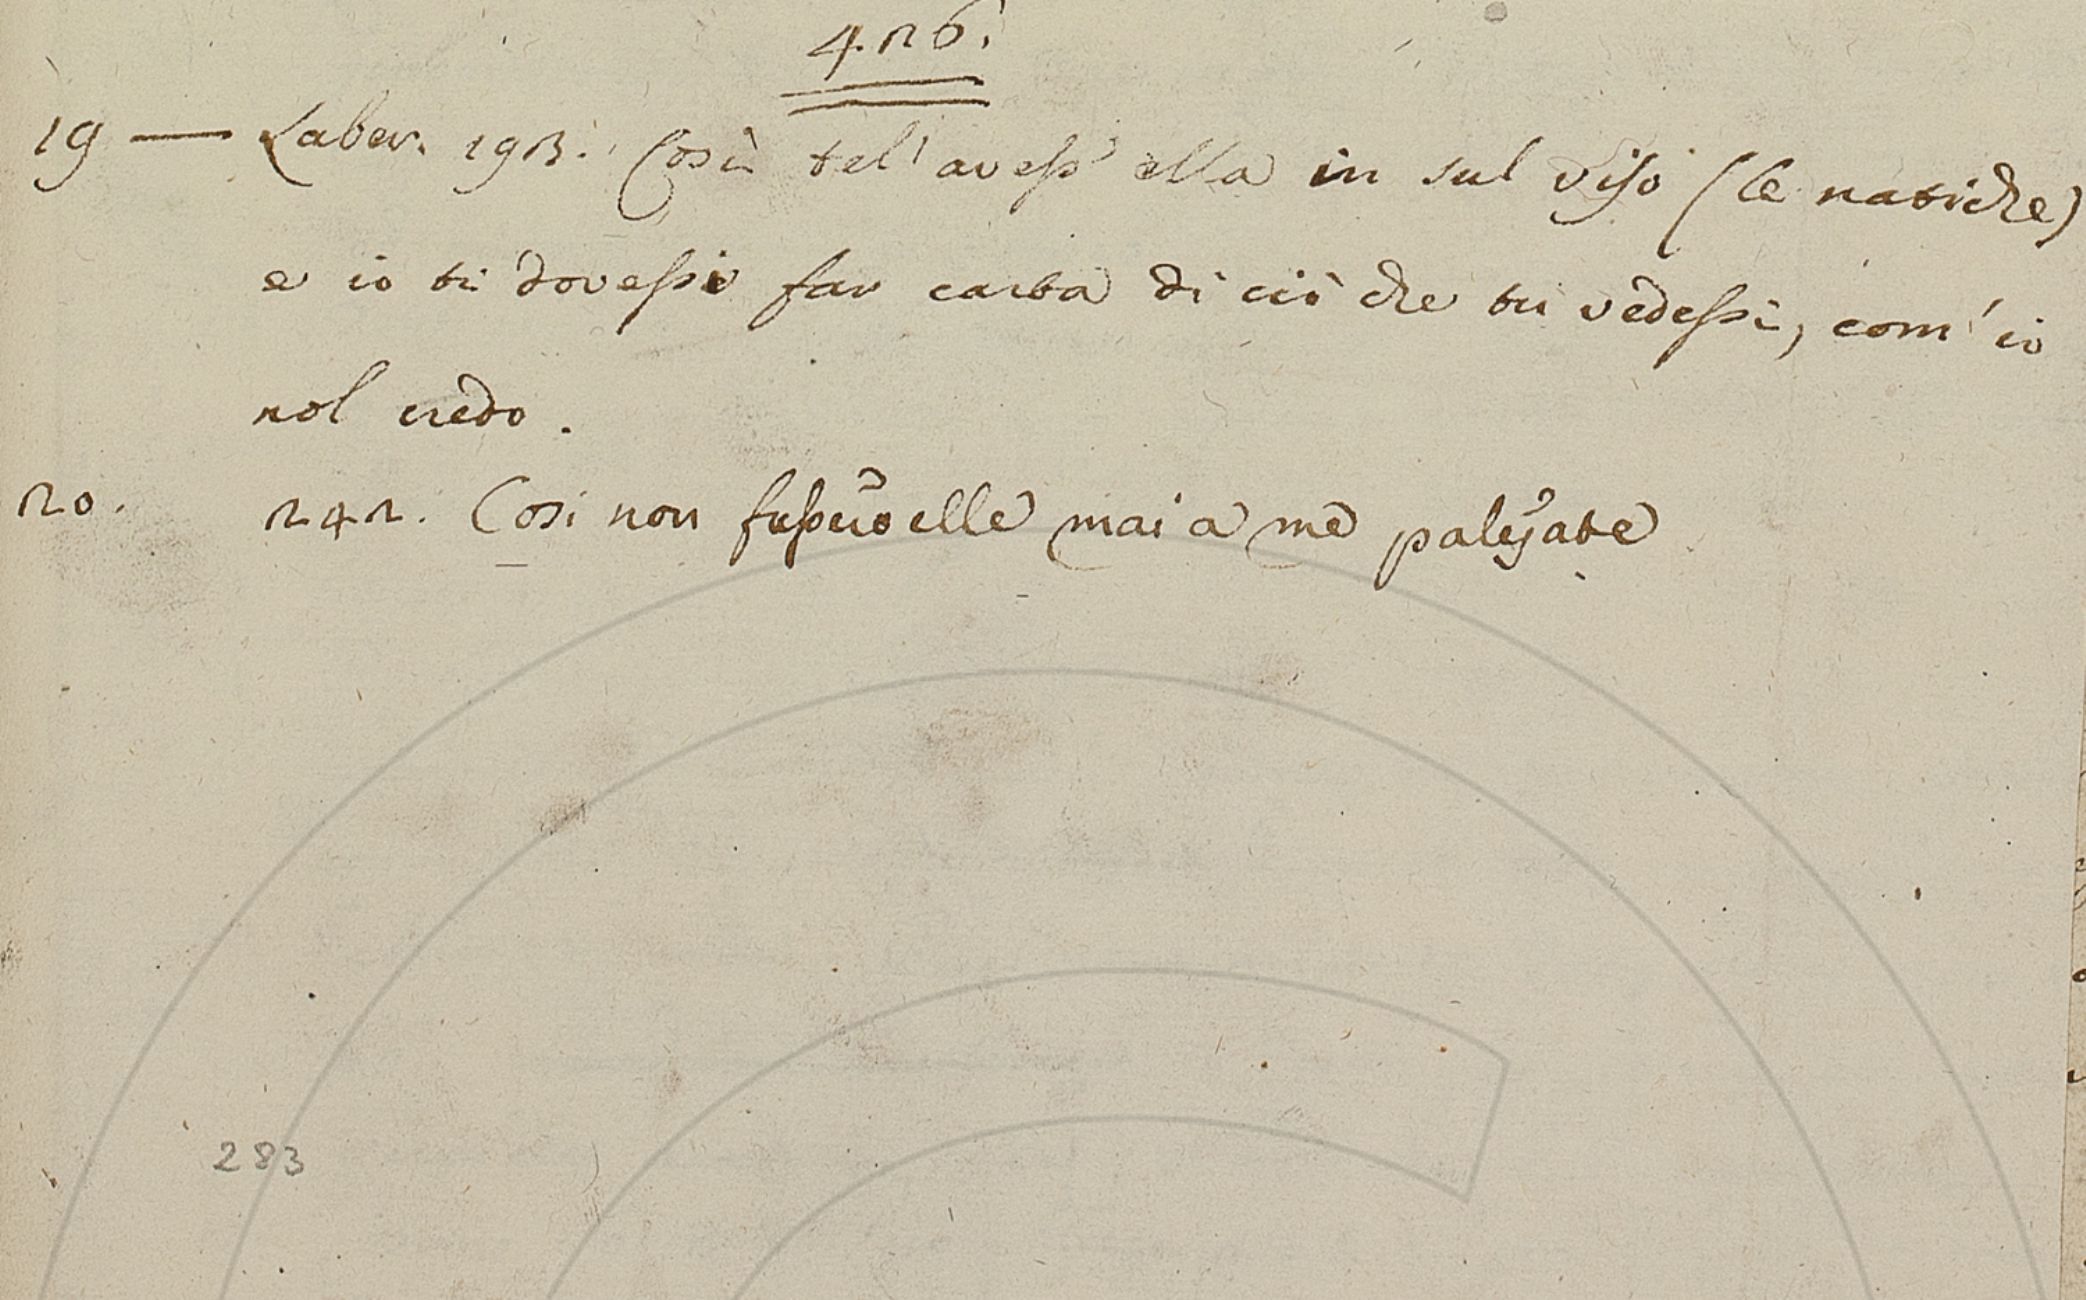 426.
19 — Laber. 193. Così tel' avess' ella in sul viso (le natiche)
e io ti dovessi far carta di ciò che tu vedessi, com' io
nol credo.
20. 242. Cosi non fussero elle mai a me palesate
283